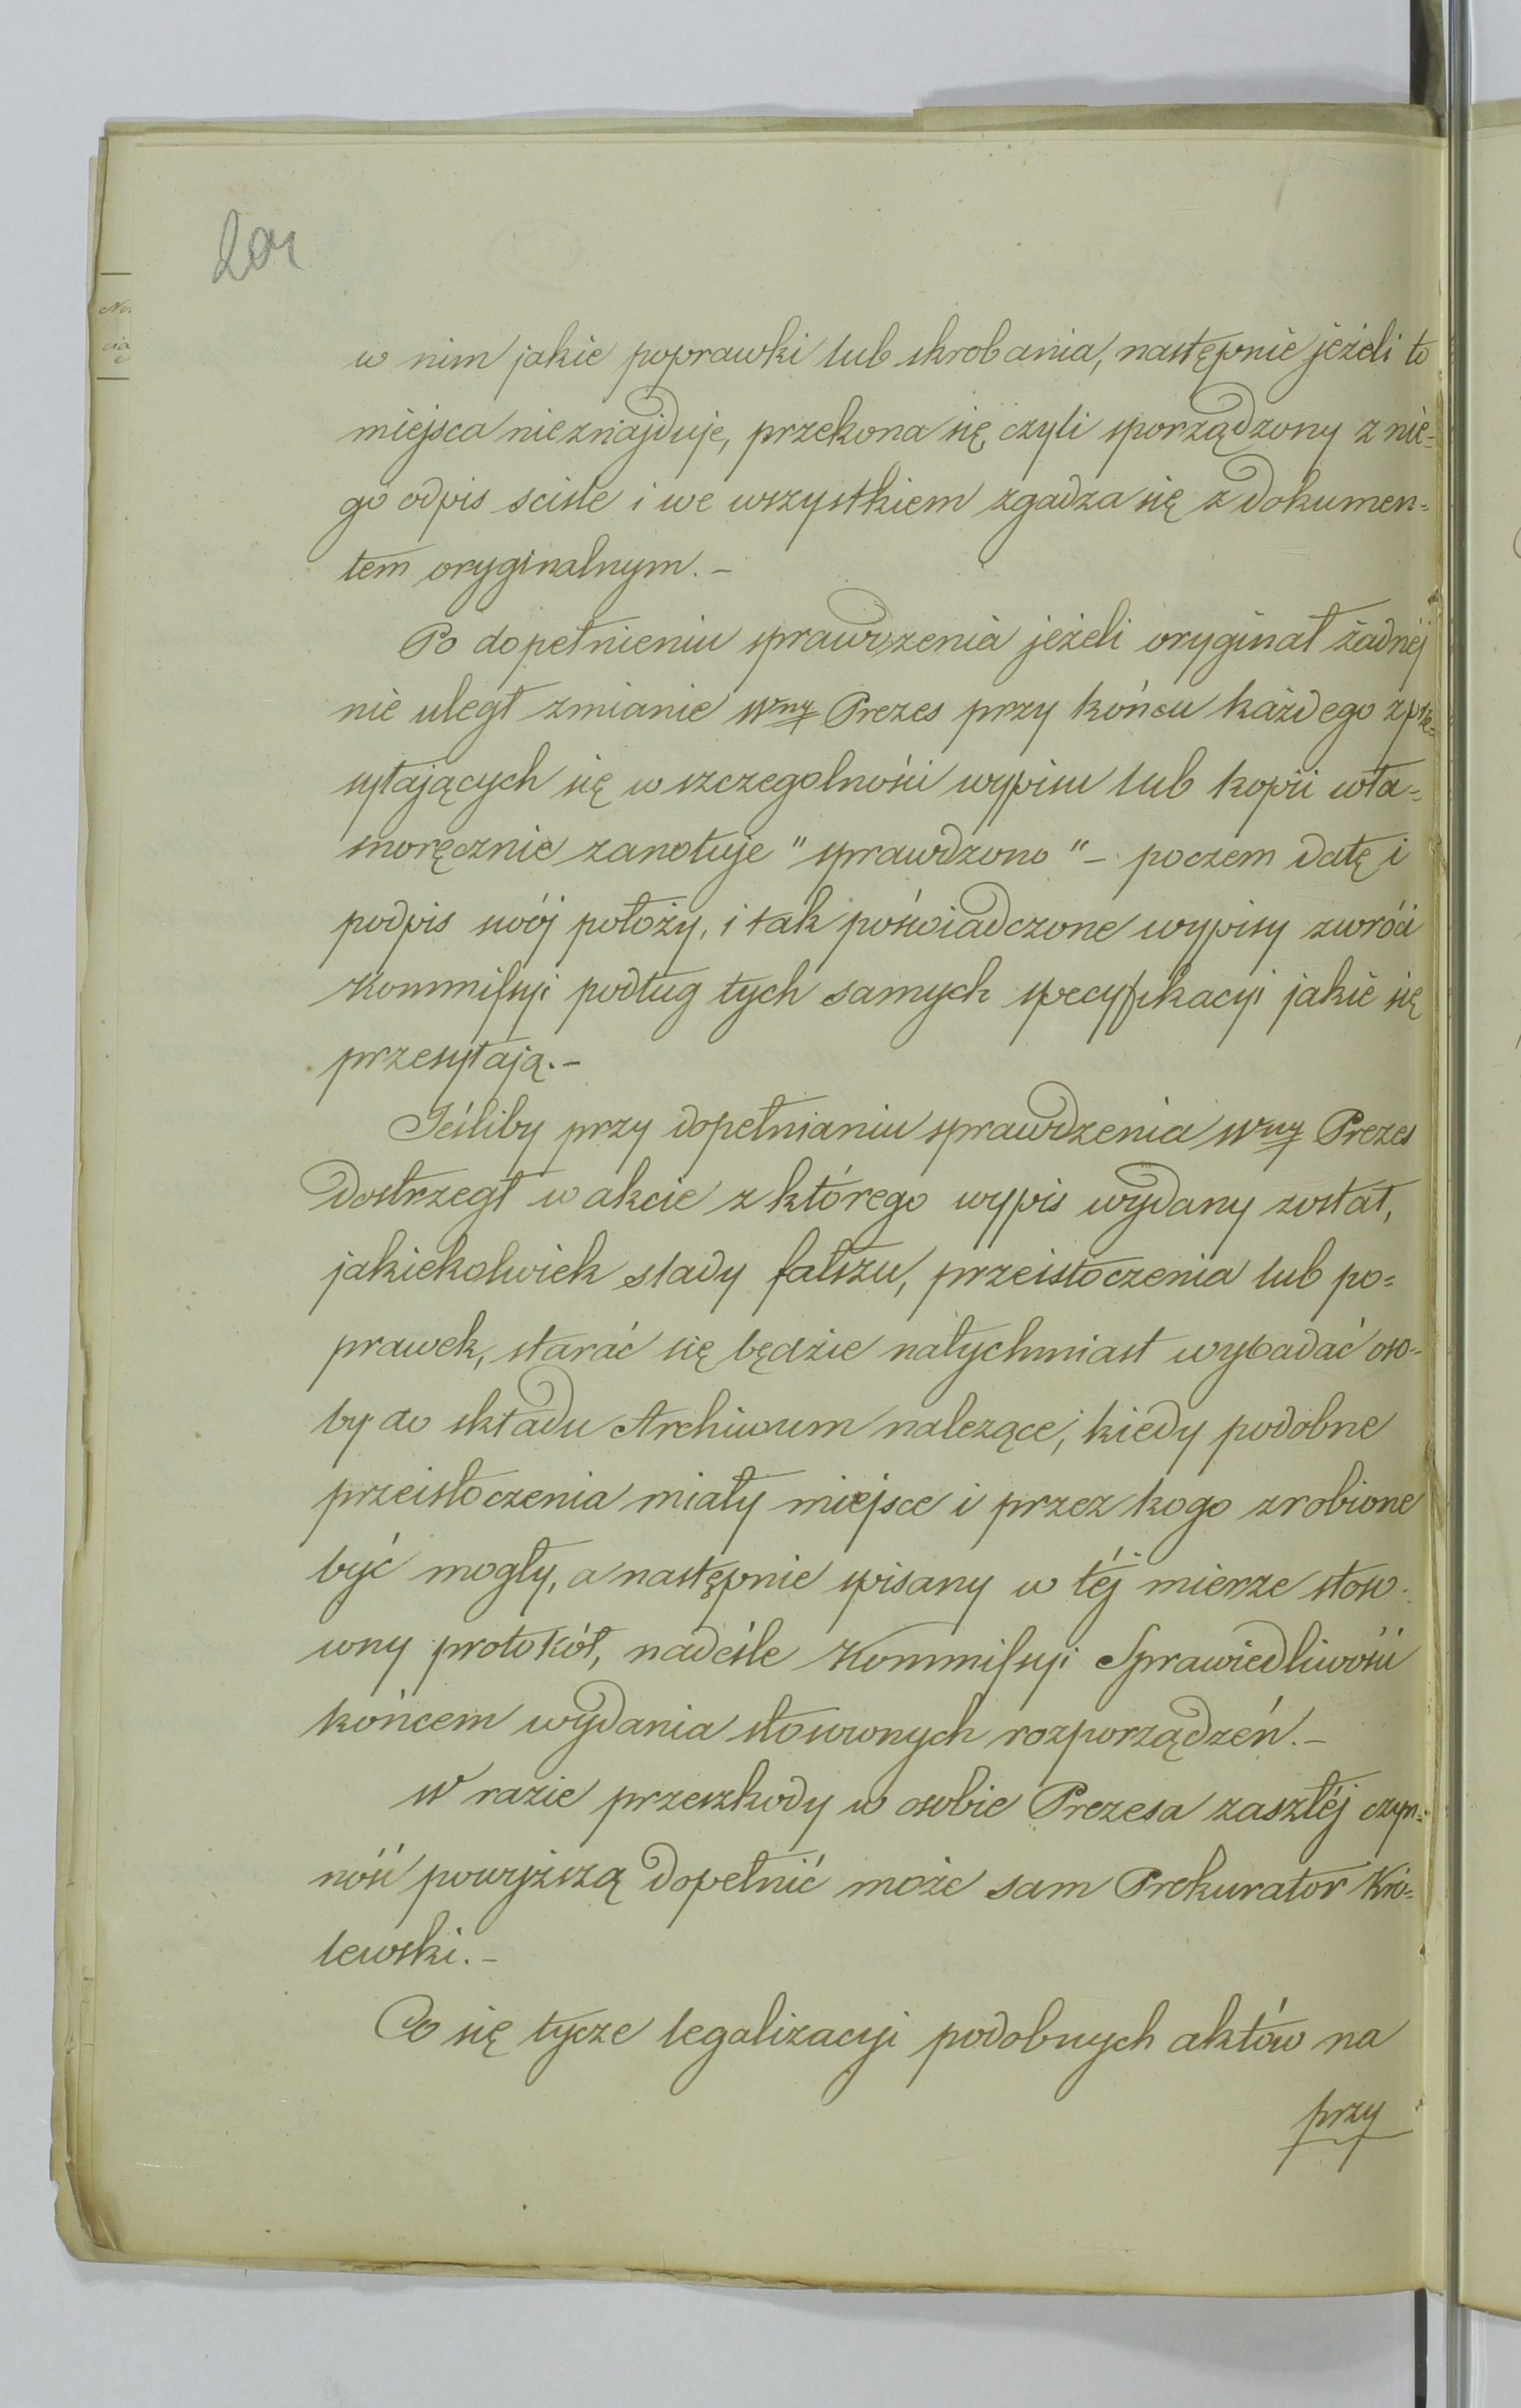 w nim jakie poprawki lub skrobania, następnie jeżeli to
miejsca nieznajduje, przekona się, czyli sporządzony z nie=
go odpis scisle i we wszystkiem zgadza się z dokumen=
tem oryginalnym.-
Po dopełnieniu sprawdzenia jeżeli oryginał żadnéj
nie uległ zmianie Wny Prezes przy końcu każdego z prze=
syłających się w szczegolności wypisu lub kopii wła=
snoręcznie zanotuje "sprawdzono" - poczem datę i
podpis swój położy, i tak poświadczone wypisy zwróci
Kommissyi podług tych samych specyfikacyi jakie się
przesyłają.-
Jeśliby przy dopełnianiu sprawdzenia Wny Prezes
dostrzegł w akcie z którego wypis wydany został,
jakiekolwiek slady fałszu, przeistoczenia lub po=
prawek, starać się będzie natychmiast wybadać oso=
by do składu Archiwum nalezące, kiedy podobne
przeistoczenia miały miejsce i przez kogo zrobione
być mogły, a następnie spisany w téj mierze stoso=
wny protokół, nadeśle Kommissyi Sprawiedliwości
końcem wydania stosownych rozporządzeń.-
W razie przeszkody w osobie Prezesa zaszłéj czyn=
ność powyższą dopełnić może sam Prokurator Kró=
lewski.-
Co się tycze legalizacyi podobnych aktów na
przy